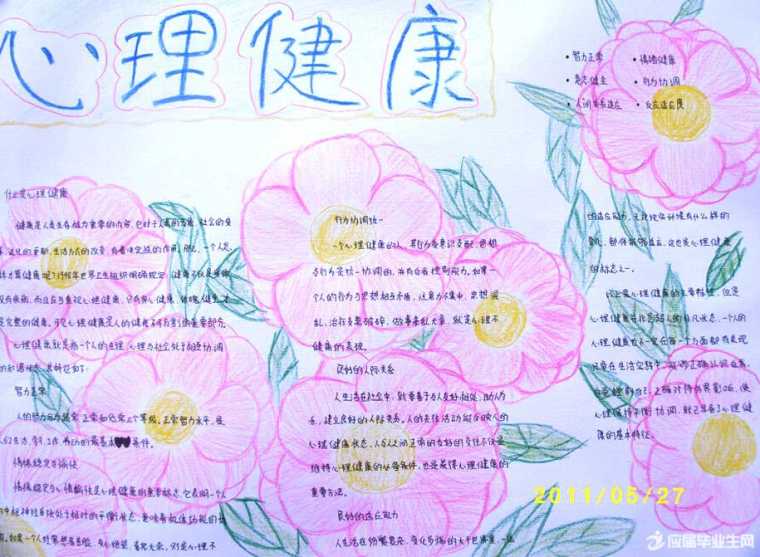 心理健康
• 智力正常 • 情绪健康
• 意志健全 • 行为协调
• 人间关系适应 • 反应适度
什么是心理健康
健康是人类生存极为重要的内容，它对于人类的发展，社会的变
革，文化的更新，生活方式的改变，有着决定性的作用。那么，一个人怎
样才算健康呢？1948年世界卫生组织明确规定：健康不仅是身体
没有疾病，而且应当重视心理健康，只有身心健康、体魄健全，才
是完整的健康。可见心理健康是人的健康不可分割的重要部分。
心理健康就是指一个人的生理、心理与社会处于相互协调
的和谐状态，其特征如下：
智力正常
人的智力分为超常、正常和低常三个等级。正常智力水平，是
人们生活、学习、工作、劳动的最基本条件。
情绪稳定与愉快
情绪稳定与心情愉快是心理健康的重要标志，它表明一个人
的中枢神经系统处于相对的平衡状态，意味着机体功能的协
调。如果一个人经常愁眉苦脸、灰心绝望、喜怒无常，则是心理不
行为协调统一
一个心理健康的人，其行为受意识支配，思想
与行为是统一协调的，并有自我控制能力。如果一
个人的行为与思想相互矛盾，注意力不集中，思想混
乱，语言支离破碎，做事杂乱无章，就是心理不
健康的表现。
良好的人际关系
人生活在社会中，就要善于与人友好相处，助人为
乐，建立良好的人际关系。人的交往活动能反映人的
心理健康状态，人与人之间正常的友好的交往不仅是
维持心理健康的必备条件，也是获得心理健康的
重要方法。
良好的适应能力
人生活在纷繁复杂、变化多端的大千世界里，一生
的适应能力，无论现实环境有什么样的
变化，都将能够适应，这也是心理健康
的标志之一。
以上是心理健康的主要特征，但是
心理健康并非是超人的非凡状态，一个人的
心理健康也不一定在每一个方面都有表现
只要在生活实践中，能够正确认识自我，
自觉控制自己，正确对待外界影响，使
心理保持平衡协调，就已具备了心理健
康的基本特征。
2011/05/27
应届毕业生网